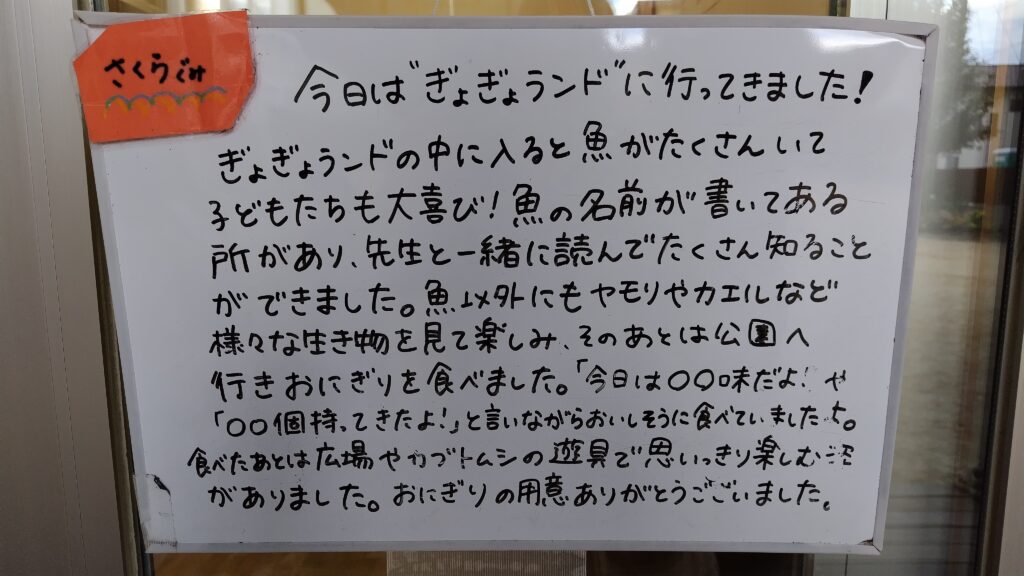 さくらぐみ
今日は"ぎょぎょランド"に行ってきました!
ぎょぎょランドの中に入ると魚がたくさんいて
子どもたちも大喜び!魚の名前が書いてある
所があり、先生と一緒に読んでたくさん知ること
ができました。魚以外にもヤモリやカエルなど
様々な生き物を見て楽しみ、そのあとは公園へ
行きおにぎりを食べました。「今日は〇〇味だよ!や
「〇〇個持ってきたよ!」と言いながらおいしそうに食べていました
食べたあとは広場やカブトムシの遊具で思いっきり楽しむ
がありました。おにぎりの用意ありがとうございました。